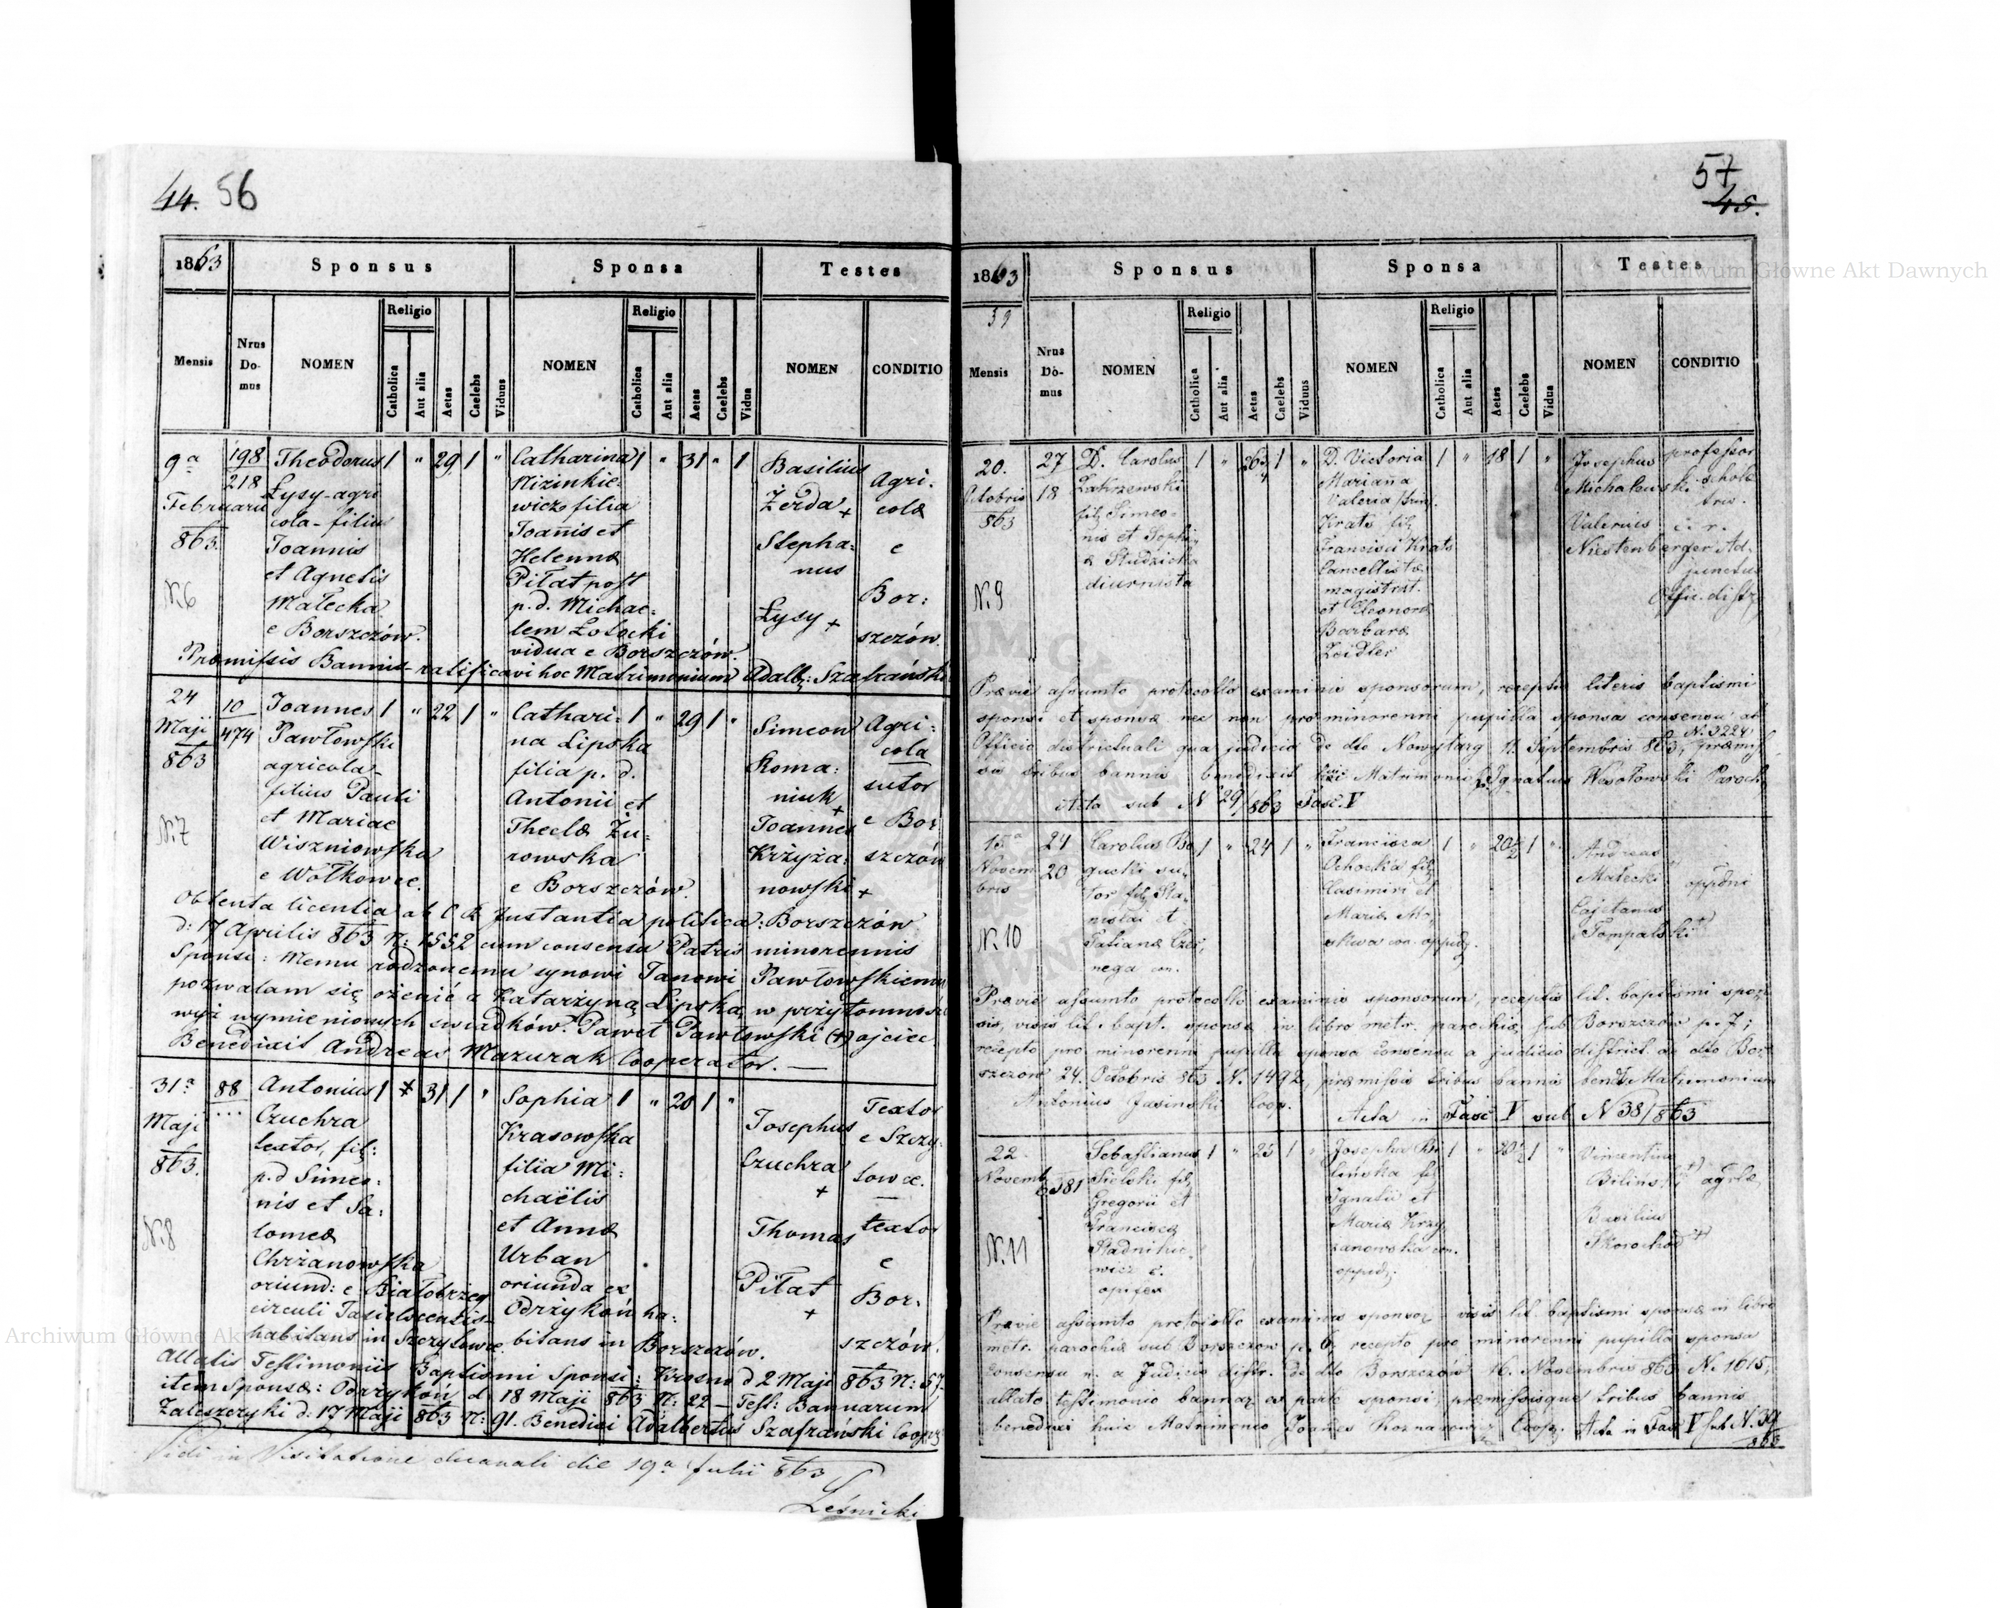 44. 56
1863
Sponsus
Sponsa
Testes
Mensis
Nrus Do- mus
NOMEN
Religio
Catholica
Aut alia
Aetas
Caelebs
Viduus
NOMEN
Religio
Catholica
Aut alia
Aetas
Caelebs
Vidua
NOMEN
CONDITIO
9ª
Februarii
863.
N.6
198
218
Theodorus
Łysy-agri
cola-filius
Joannis
et Agnetis
Małecka
e Borszczów.
1 " 29 1 "
Catharina
Nizinkie-
wicz filia
Joannis et
Helennæ
Piłat post
p. d. Michae-
lem Łotocki
vidua e Borszczów.
1 " 31 " 1
Basilius
Żerda +
Stepha-
nus
Łysy +
Agri-
colæ
e
Bor:
szczów.
Præmissis Bannis ratificavi hoc Matrimonium Adalb: Szafrański
24
Maji
863
N.7
10
474
Joannes
Pawłowski
agricola-
filius Pauli
et Mariae
Wiszniowska
e Wołkowce.
1 " 22 1 "
Cathari-
na Lipska
filia p. d.
Antonii et
Theclæ Żu-
rowska
e Borszczów.
1 " 29 1 "
Simeon
Roma:
niuk +
Joannes
Krzyża:
nowski +
Agri-
cola
sutor
e Bor
szczów
Obtenta licentia ab C R Instantia politica: Borszczów
d: 17 Aprilis 863 N: 1552 cum consensu Patris minorennis
Sponsi: Memu rodzonemu synowi Janowi Pawłowskiemu
pozwalam się ożenić z Katarzyną Lipską w przytomności
wyż wymienionych świadków. Paweł Pawłowski (+) ojciec
Benedixit Andreas Mazurak Cooperator.
31ª
Maji
863.
N.8
88
Antonius
Czuchra
textor, fil:
p. d Simeo:
nis et Sa:
lomeæ
Chrzanowska
oriund: e Białobrzeg
circuli Jasielscensis
habitans in Szczytowce.
1 " 31 1 "
Sophia
Krasowska
filia Mi:
chaëlis
et Annæ
Urban
oriunda ex
Odrzykoń ha:
bitans in Borszczów.
1 " 20 1 "
Josephus
Czuchra
+
Thomas
Piłat
+
Textor
e Szczy-
towce.
textor
e
Bor:
szczów.
Allatis Testimoniis Baptismi Sponsi: Krosno d 2 Maji 863 N: 57-
item Sponsæ: Odrzykoń d 18 Maji 863 N: 22 - Test: Bannorum
Zaleszczyki d: 17 Maji 863 N: 91. Benedixi Adalbertus Szafrański Coop
Vidi in Visitatione decanali die 19ª Julii 863
Leśnicki
57
45.
1863
59
Sponsus
Sponsa
Testes
Mensis
Nrus Do- mus
NOMEN
Religio
Catholica
Aut alia
Aetas
Caelebs
Viduus
NOMEN
Religio
Catholica
Aut alia
Aetas
Caelebs
Vidua
NOMEN
CONDITIO
20.
Octobris
863
N.9
27
18
D. Carolus
Zakrzewski
fil. Simeo-
nis et Sophi-
æ Studzicka
diurnista
D. Victoria
Marianna
Valeria
Krats fil.
Francisci Krats
Cancellistæ
magistrat.
et Eleonoræ
Barbaræ
Zeidler
1 " 18 1 "
Josephus
Michałowski
Valerius
Niestenberger
professor
scholæ
c. r.
Ad-
junctus
Offic. distr.
Prævie assumto protocollo examinis sponsorum, receptis literis baptismi
sponsi et sponsæ nec non pro minorenni pupilla sponsa consensu ab
Officio districtuali qua judicio de dto Nowytarg 11 Septembris 863, N. 3224 præmis-
sis tribus bannis benedixit huic Matrimonio Ignatius Wesołowski Paroch
Acta sub N 29/863 Fasc. V
15ª
Novem
bris
N.10
24
20
Carolus Bo
gucki su-
tor fil. Sta-
nislai et
Tatianæ
1 " 24 1 "
Francisca
Ochocka fil.
Casimiri et
Mariæ Mo-
skwa con. oppid.
Andreas
Małecki
Cajetanus
Tompalski +)
oppidni
Prævie assumto protocollo examinis sponsorum, receptis lit. baptismi spon-
si, visis lit. bapt. sponsæ in libro metr. parochiæ sub Borszczów p. 7;
recepto pro minorenni pupilla sponsa consensu a judicio district. de dto Bor-
szczów 24. Octobris 863 N. 1492, præmissis tribus bannis bened. Matrimonium
Antonius Jasinski Coop. Acta in Fasc V sub N 38/863
22
Novemb
N.11
381
Sebastianus
Sielski fil.
Gregorii et
Franciscæ
Stadnike-
wicz c.
opifex
1 " 25 1 "
Josepha Bi
lińska fil.
Ignatii et
Mariæ Krzy
zanowska con.
oppid.
Vincentius
Bilinski +)
Basilius
Skorochod +)
agrlæ
Prævie assumto protocollo examinis sponsor. visis lit. baptismi sponsæ in libro
metr. parochiæ sub Borszczow p. 6, recepto pro minorenni pupilla sponsa
consensu a Judicio distr. de dto Borszczów 16. Novembris 863 N. 1015,
allato testimonio bannor. ex parte sponsi, præmissisque tribus bannis
benedixi huic Matrimonio Joanes Coop. Acta in Fasc V sub N. 39/863
Archiwum Główne Akt Dawnych
Archiwum Główne Akt